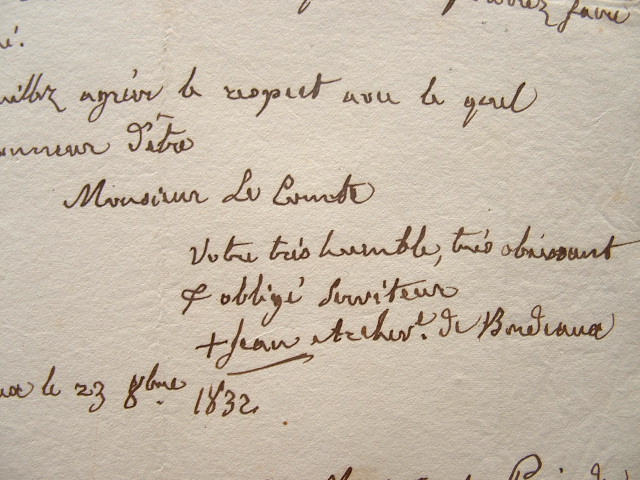 faire
é.
uillez agréer le respect avec le quel
onneur d'être
Monsieur Le Comte
votre très humble, très obéissant
& obligé Serviteur
+ Jean Archev.ê de Bordeaux
ux le 23 8bre 1832.